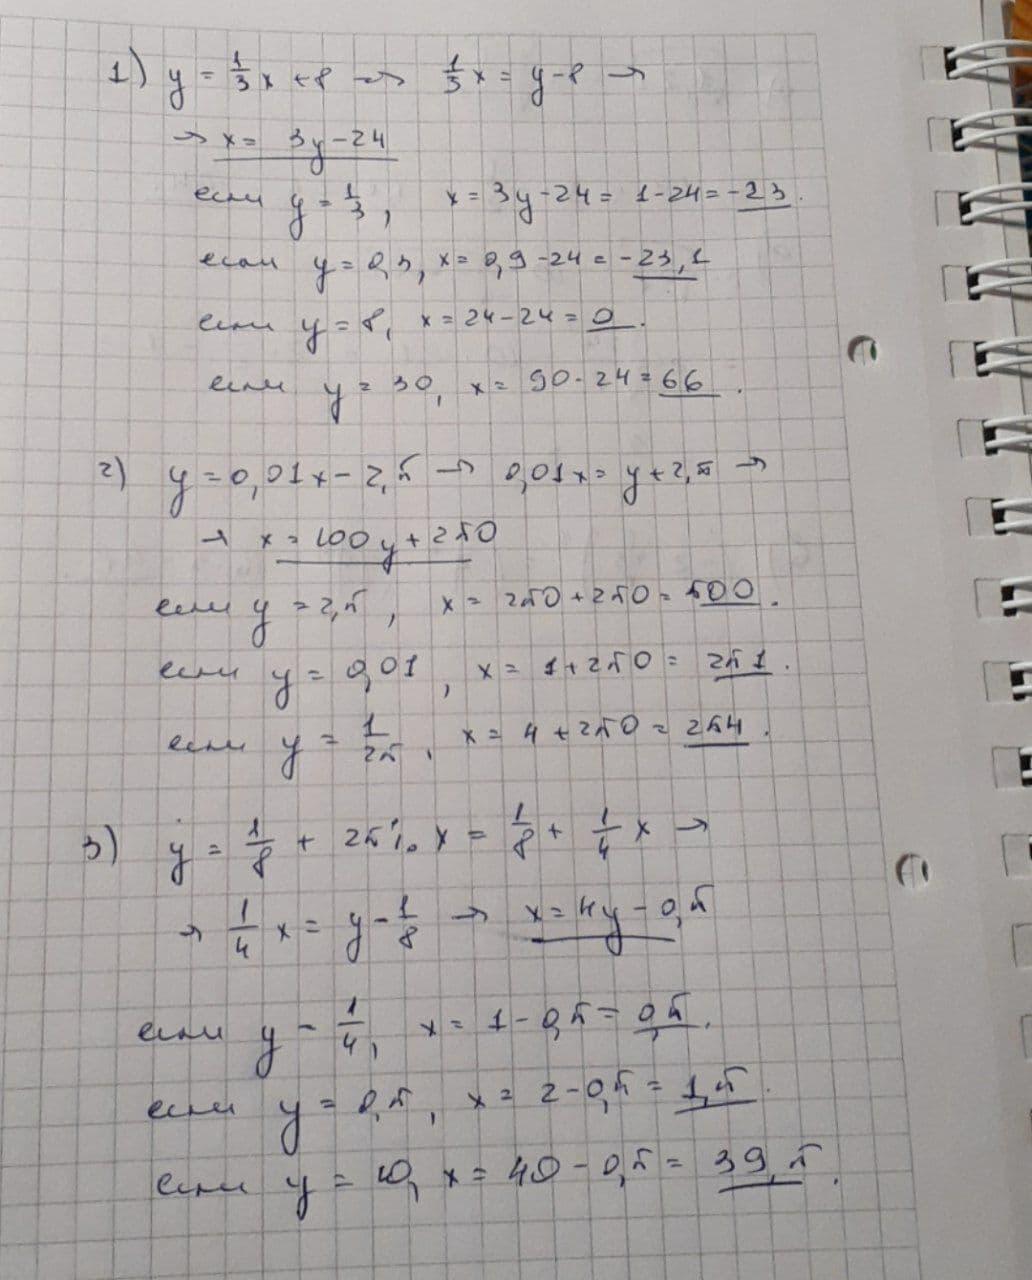 1) y = 1/3 x + 8 → 1/3 x = y - 8 →
→ x = 3y - 24
если y = 1/3, x = 3y - 24 = 1 - 24 = -23.
если y = 0,3, x = 0,9 - 24 = -23,1
если y = 8, x = 24 - 24 = 0.
если y = 30, x = 90 - 24 = 66.
2) y = 0,01x - 2,5 → 0,01x = y + 2,5 →
→ x = 100y + 250
если y = 2,5, x = 250 + 250 = 500.
если y = 0,01, x = 1 + 250 = 251.
если y = 1/25, x = 4 + 250 = 254.
3) y = 1/8 + 25% x = 1/8 + 1/4 x →
→ 1/4 x = y - 1/8 → x = 4y - 0,5
если y = 1/4, x = 1 - 0,5 = 0,5.
если y = 0,5, x = 2 - 0,5 = 1,5.
если y = 10, x = 40 - 0,5 = 39,5.